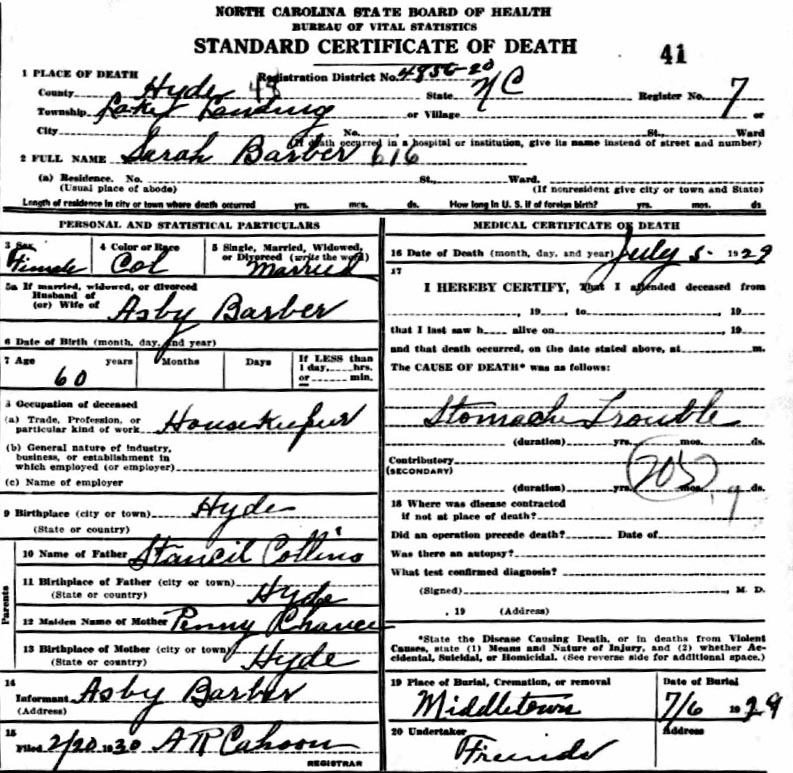 NORTH CAROLINA STATE BOARD OF HEALTH
BUREAU OF VITAL STATISTICS
STANDARD CERTIFICATE OF DEATH
41
1 PLACE OF DEATH Registration District No. 4856-20
County Hyde 48 State NC Register No. 7
Township Lake Landing or Village or
City No. St., Ward
(If death occurred in a hospital or institution, give its name instead of street and number)
2 FULL NAME Sarah Barber 616
(a) Residence. No. St., Ward.
(Usual place of abode) (If nonresident give city or town and State)
Length of residence in city or town where death occurred yrs. mos. ds. How long in U. S. if of foreign birth? yrs. mos. ds
PERSONAL AND STATISTICAL PARTICULARS
3 Sex Female
4 Color or Race Col
5 Single, Married, Widowed,
or Divorced (write the word)
Married
5a If married, widowed, or divorced
Husband of
(or) Wife of Asby Barber
6 Date of Birth (month, day, and year)
7 Age 60 years Months Days If LESS than
1 day, hrs.
or min.
8 Occupation of deceased
(a) Trade, Profession, or
particular kind of work Housekeeper
(b) General nature of industry,
business, or establishment in
which employed (or employer)
(c) Name of employer
9 Birthplace (city or town) Hyde
(State or country)
Parents
10 Name of Father Stancil Collins
11 Birthplace of Father (city or town)
(State or country) Hyde
12 Maiden Name of Mother Penny Chance
13 Birthplace of Mother (city or town)
(State or country) Hyde
14
Informant Asby Barber
(Address)
15
Filed 2/20 1930 A R Cahoon
REGISTRAR
MEDICAL CERTIFICATE OF DEATH
16 Date of Death (month, day, and year) July 5 1929
17
I HEREBY CERTIFY, That I attended deceased from
, 19 , to , 19
that I last saw h alive on , 19
and that death occurred, on the date stated above, at m.
The CAUSE OF DEATH* was as follows:
Stomach Trouble
(duration) yrs. mos. ds.
Contributory
(SECONDARY)
205
(duration) yrs. mos. 9 ds.
18 Where was disease contracted
if not at place of death?
Did an operation precede death? Date of
Was there an autopsy?
What test confirmed diagnosis?
(Signed) , M. D.
, 19 (Address)
*State the Disease Causing Death, or in deaths from Violent
Causes, state (1) Means and Nature of Injury, and (2) whether Ac-
cidental, Suicidal, or Homicidal. (See reverse side for additional space.)
19 Place of Burial, Cremation, or removal
Middletown
Date of Burial
7/6 1929
20 Undertaker
Friends
Address